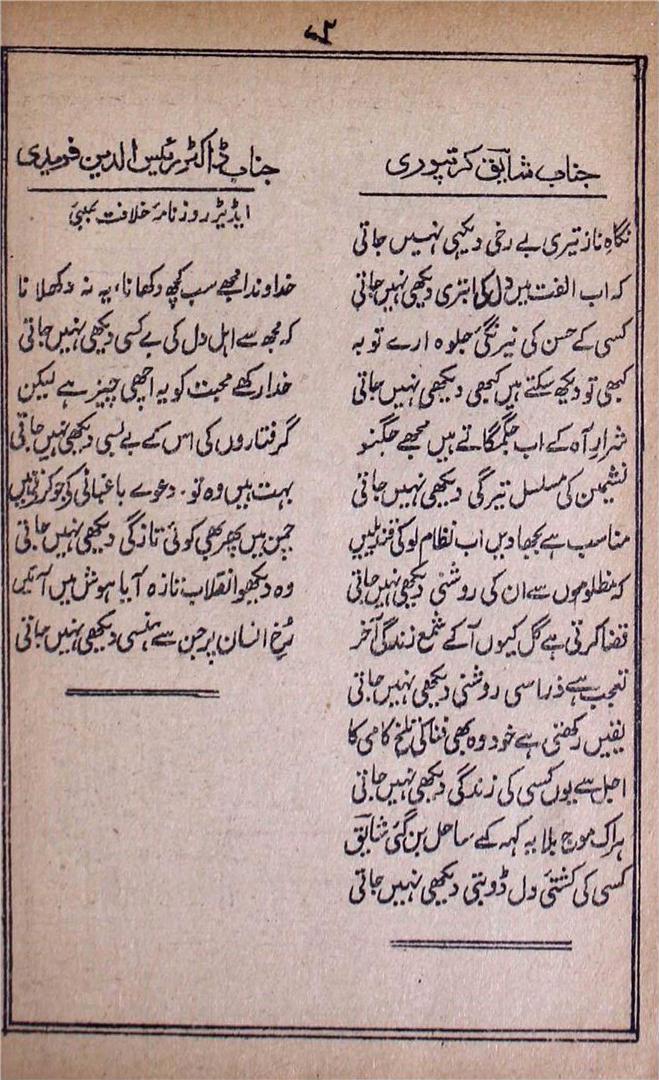 ۷۲
جناب شایق کرتپوری
نگاہِ ناز تیری بے رخی دیکھی نہیں جاتی
کہ اب الفت میں دل کی ابتری دیکھی نہیں جاتی
کسی کے حسن کی نیرنگیٔ جلوہ ارے توبہ
کبھی تو دیکھ سکتے ہیں کبھی دیکھی نہیں جاتی
شرارِ آہ کے اب جگمگاتے ہیں مجھے جگنو
نشیمن کی مسلسل تیرگی دیکھی نہیں جاتی
مناسب ہے بجھا دیں اب نظام لو کی قندیلیں
کہ مظلوموں سے ان کی روشنی دیکھی نہیں جاتی
قضا کرتی ہے گل کیوں آ کے شمع زندگی آخر
تعجب ہے ذرا سی روشنی دیکھی نہیں جاتی
یقیں رکھتی ہے خود وہ بھی فنا کی تلخ کامی کا
اجل سے یوں کسی کی زندگی دیکھی نہیں جاتی
ہر اک موج بلا یہ کہہ کے ساحل بن گئی شایق
کسی کی کشتیٔ دل ڈوبتی دیکھی نہیں جاتی
جناب ڈاکٹر رئیس الدین فریدی
ایڈیٹر روزنامہ خلافت بمبئی
خداوندا مجھے سب کچھ دکھانا، یہ نہ دکھلانا
کہ مجھ سے اہل دل کی بے کسی دیکھی نہیں جاتی
خدا رکھے محبت کو یہ اچھی چیز ہے لیکن
گرفتاروں کی اس کے بے بسی دیکھی نہیں جاتی
بہت ہیں وہ تو۔ دعوے باغبانی کی جو کرتے ہیں
چمن میں پھر بھی کوئی تازگی دیکھی نہیں جاتی
وہ دیکھو انقلاب تازہ آیا ہوش میں آئیں
رُخِ انسان پر جن سے ہنسی دیکھی نہیں جاتی